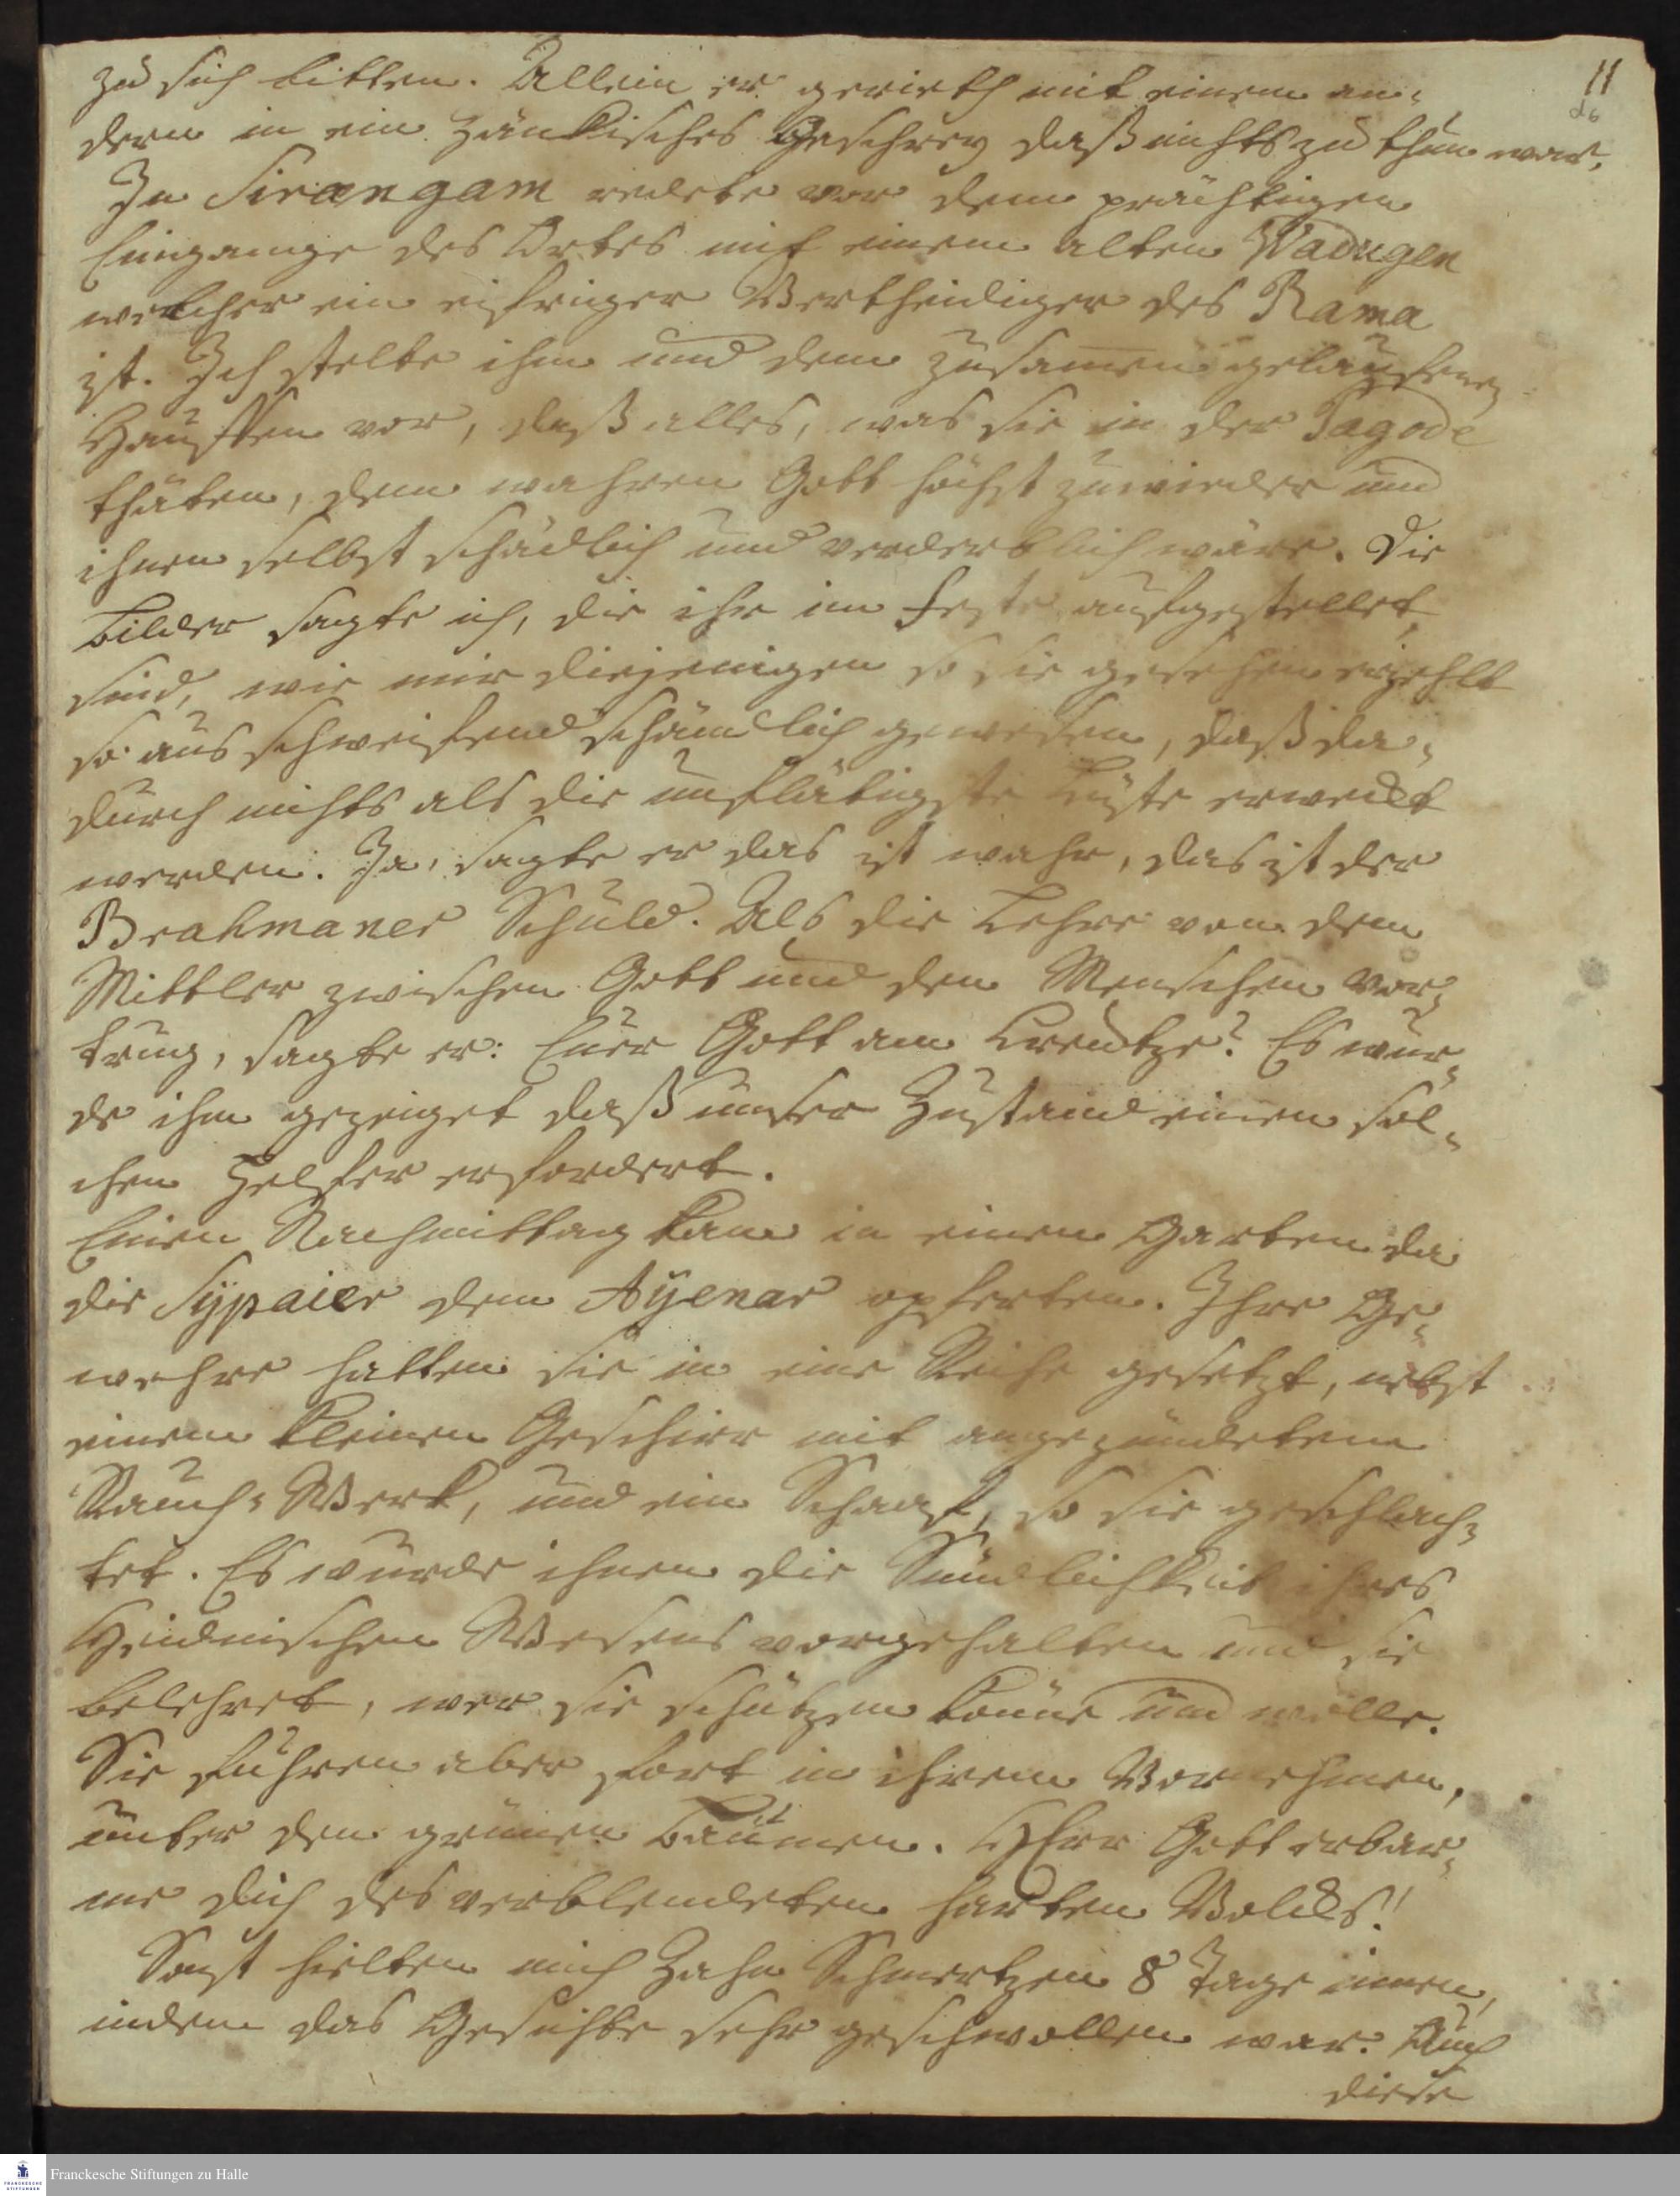 11
d6
zu sich bitten. Allein er gerieth mit einem an-
dern in ein zänkisches Geschrey daß nichts zu thun war,
In Sirangam redete vor dem prächtigen
Eingange des Ortes mit einem alten Wadugen
welcher ein eifriger Vertheidiger des Rama
ist. Ich stelte ihm und dem zusamen gelauffenen
Hauffen vor, daß alles, was sie in der Pagode
thäten, dem wahren Gott höchst zuwieder und
ihnen selbst schädlich und verderblich wäre. Die
Bilder sagte ich, die ihr im Feste aufgestellet,
sind, wie mir diejenigen so sie gesehen erzehlt
so ausschweifend schändlich gewesen, daß da-
durch nichts als die unflätigste Lüste erweckt
werden. Ja, sagte er das ist wahr, das ist der
Brahmaner Schuld. Als die Lehre von dem
Mittler zwischen Gott und den Menschen vor-
trug, sagte er: Euer Gott am Creutze? Es wur-
de ihm gezeiget daß unser Zustand einen sol-
chen Helfer erfordert.
Einen Nachmittag kam in einen Garten da
die Sypaier dem Ayenar opferten. Ihre Ge-
wehre hatten sie in eine Reihe gesetzt, nebst
einem kleinen Geschirr mit angezündetem
Rauch-Werk, und ein Schaaf, so sie geschlach-
tet. Es wurde ihnen die Sündlichkeit ihres
Heidnischen Wesens vorgehalten und sie
belehret, wer sie schützen könne und wolle.
Sie fuhren aber fort in ihrem Vornehmen,
unter den grünen Bäumen. HErr Gott erbar-
me dich des verblendeten harten Volcks!
Sonst hielten mich Zahn Schmertzen 8 Tage innen,
indem das Gesichte sehr geschwollen war. Auch
diese
Franckesche Stiftungen zu Halle
FRANCKESCHE
STIFTUNGEN